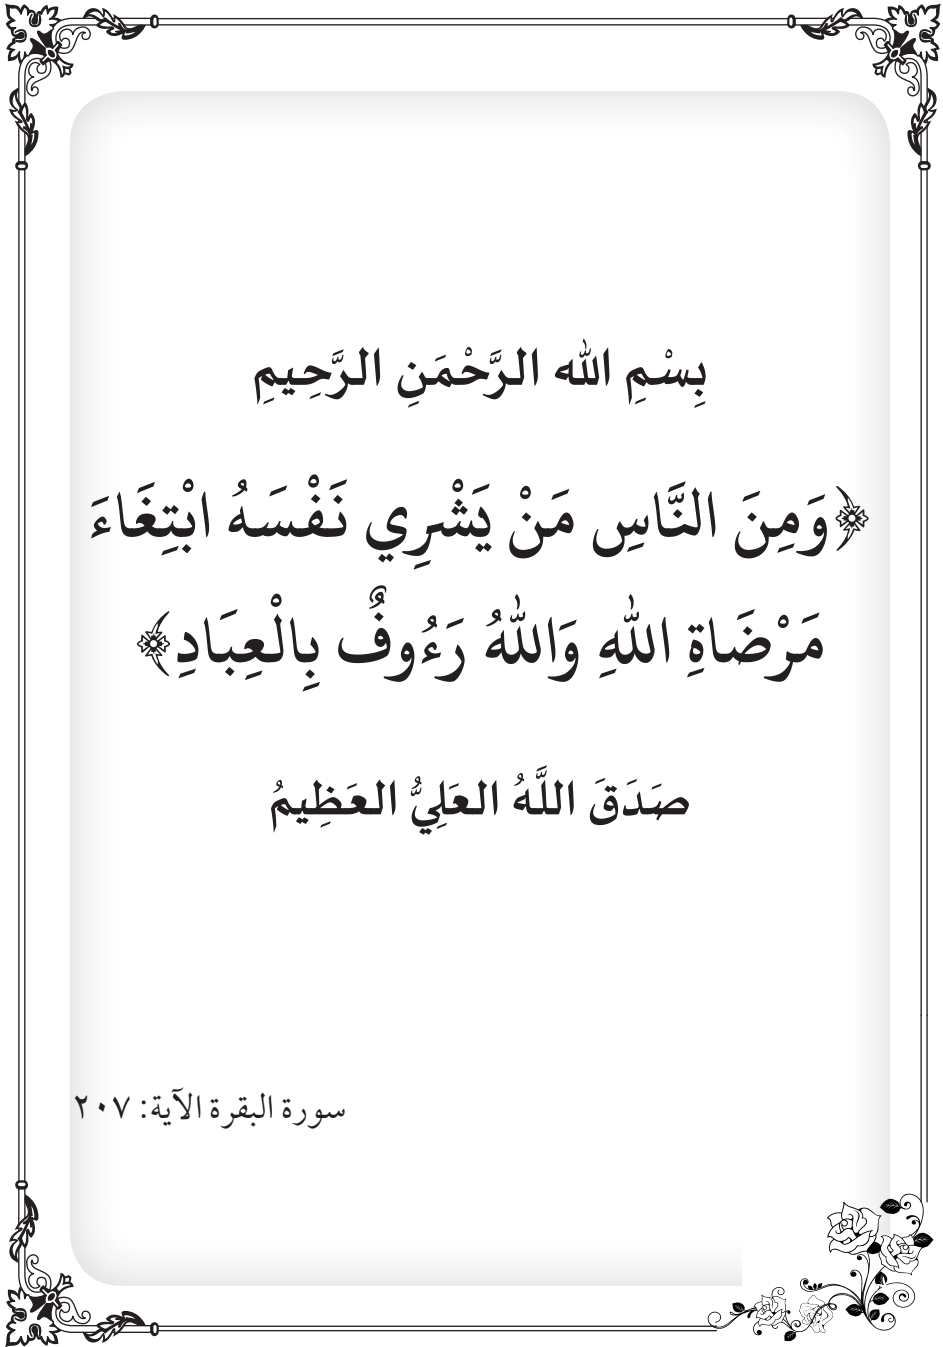 بِسْمِ الله الرَّحْمَنِ الرَّحِيمِ
﴿وَمِنَ النَّاسِ مَنْ يَشْرِي نَفْسَهُ ابْتِغَاءَ
مَرْضَاةِ اللهِ وَاللهُ رَءُوفٌ بِالْعِبَادِ﴾
صَدَقَ اللَّهُ العَلِيُّ العَظِيمُ
سورة البقرة الآية: ٢٠٧